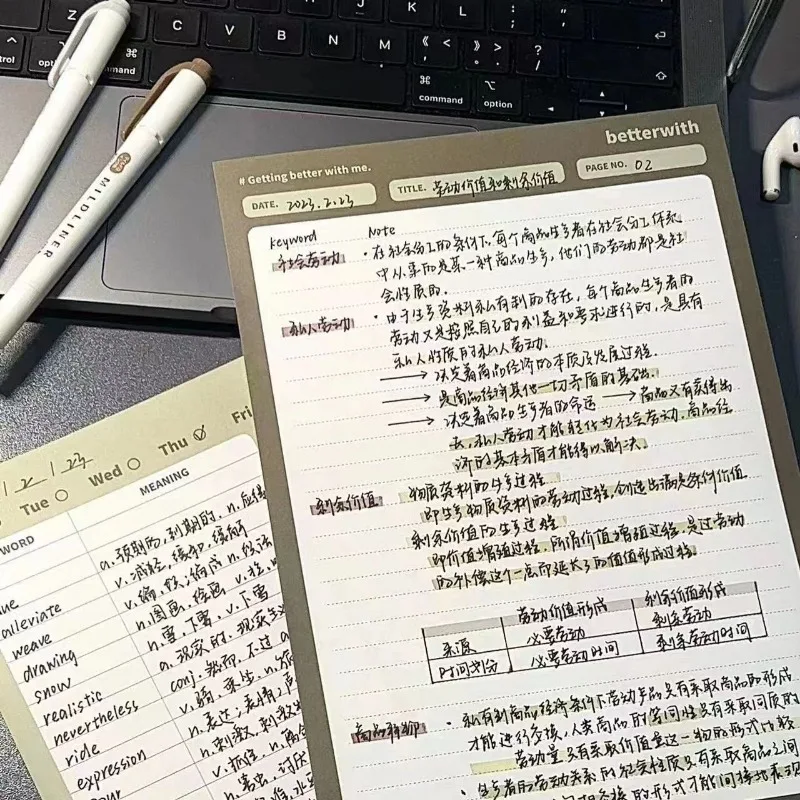 Z
X
C
V
B
N
M
J
K
L
command
option
command
option
MILDLINER
betterwith
# Getting better with me.
DATE. 2023.2.23
TITLE. 劳动价值和剩余价值
PAGE NO. 02
keyword Note
社会劳动 · 在社会分工的条件下,每个商品生产者在社会分工体系
中从事的是某一种商品生产,他们的劳动都是社
会性质的.
私人劳动 · 由于生产资料私有制的存在,每个商品生产者的
劳动又是按照自己的利益和要求进行的,是具有
私人性质的私人劳动.
→ 决定着商品经济的本质及发展过程.
→ 是商品经济其他一切矛盾的基础.
→ 决定着商品生产者的命运 → 商品又有获得出
去,私人劳动才能转化为社会劳动,商品经
济的基本矛盾才能得以解决.
剩余价值 物质资料的生产过程
即生产物质资料的劳动过程,创造出满足条件价值
剩余价值的生产过程
即价值增殖过程,所谓价值增殖过程,是过劳动
的补偿这个一点而延长了的价值形成过程.
劳动价值形成 剩余价值形成
来源 必要劳动 剩余劳动
时间划分 必要劳动时间 剩余劳动时间
商品拜物 · 私有制商品经济条件下劳动产品只有采取商品的形式
才能进行交换,人类商品的等同性只有采取同质的
劳动量只有采取价值量这一物的形式比较
· 生产者的劳动关系的社会性质只有采取商品之间
的形式才能间接地表现
1 2 / 23
Tue
Wed
Thu
Fri
WORD MEANING
a. 预期的,到期的. n. 应得
alleviate v. 减轻,缓和,缓解
weave v. 编,织;编成 n. 织法
drawing n. 图画,绘画
snow n. 雪,下雪, v. 下雪
realistic a. 现实的,现实主义
nevertheless conj. 然而,不过
ride v. 骑,乘坐, n.
expression n. 表达;表情;声
n. 刺激,刺激物
v. 抓住
n. 害虫,讨厌